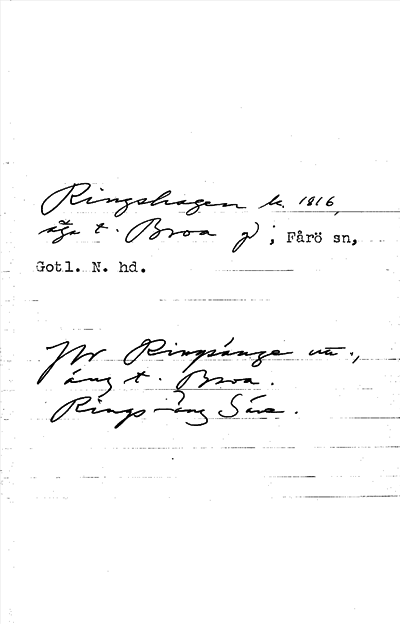 Ringshagen k. 1816,
äga t. Broa g); Fårö sn,
Gotl. N. hd.
Jfr Ringsänge
äng t. Broa.
Rings-äng Säve.